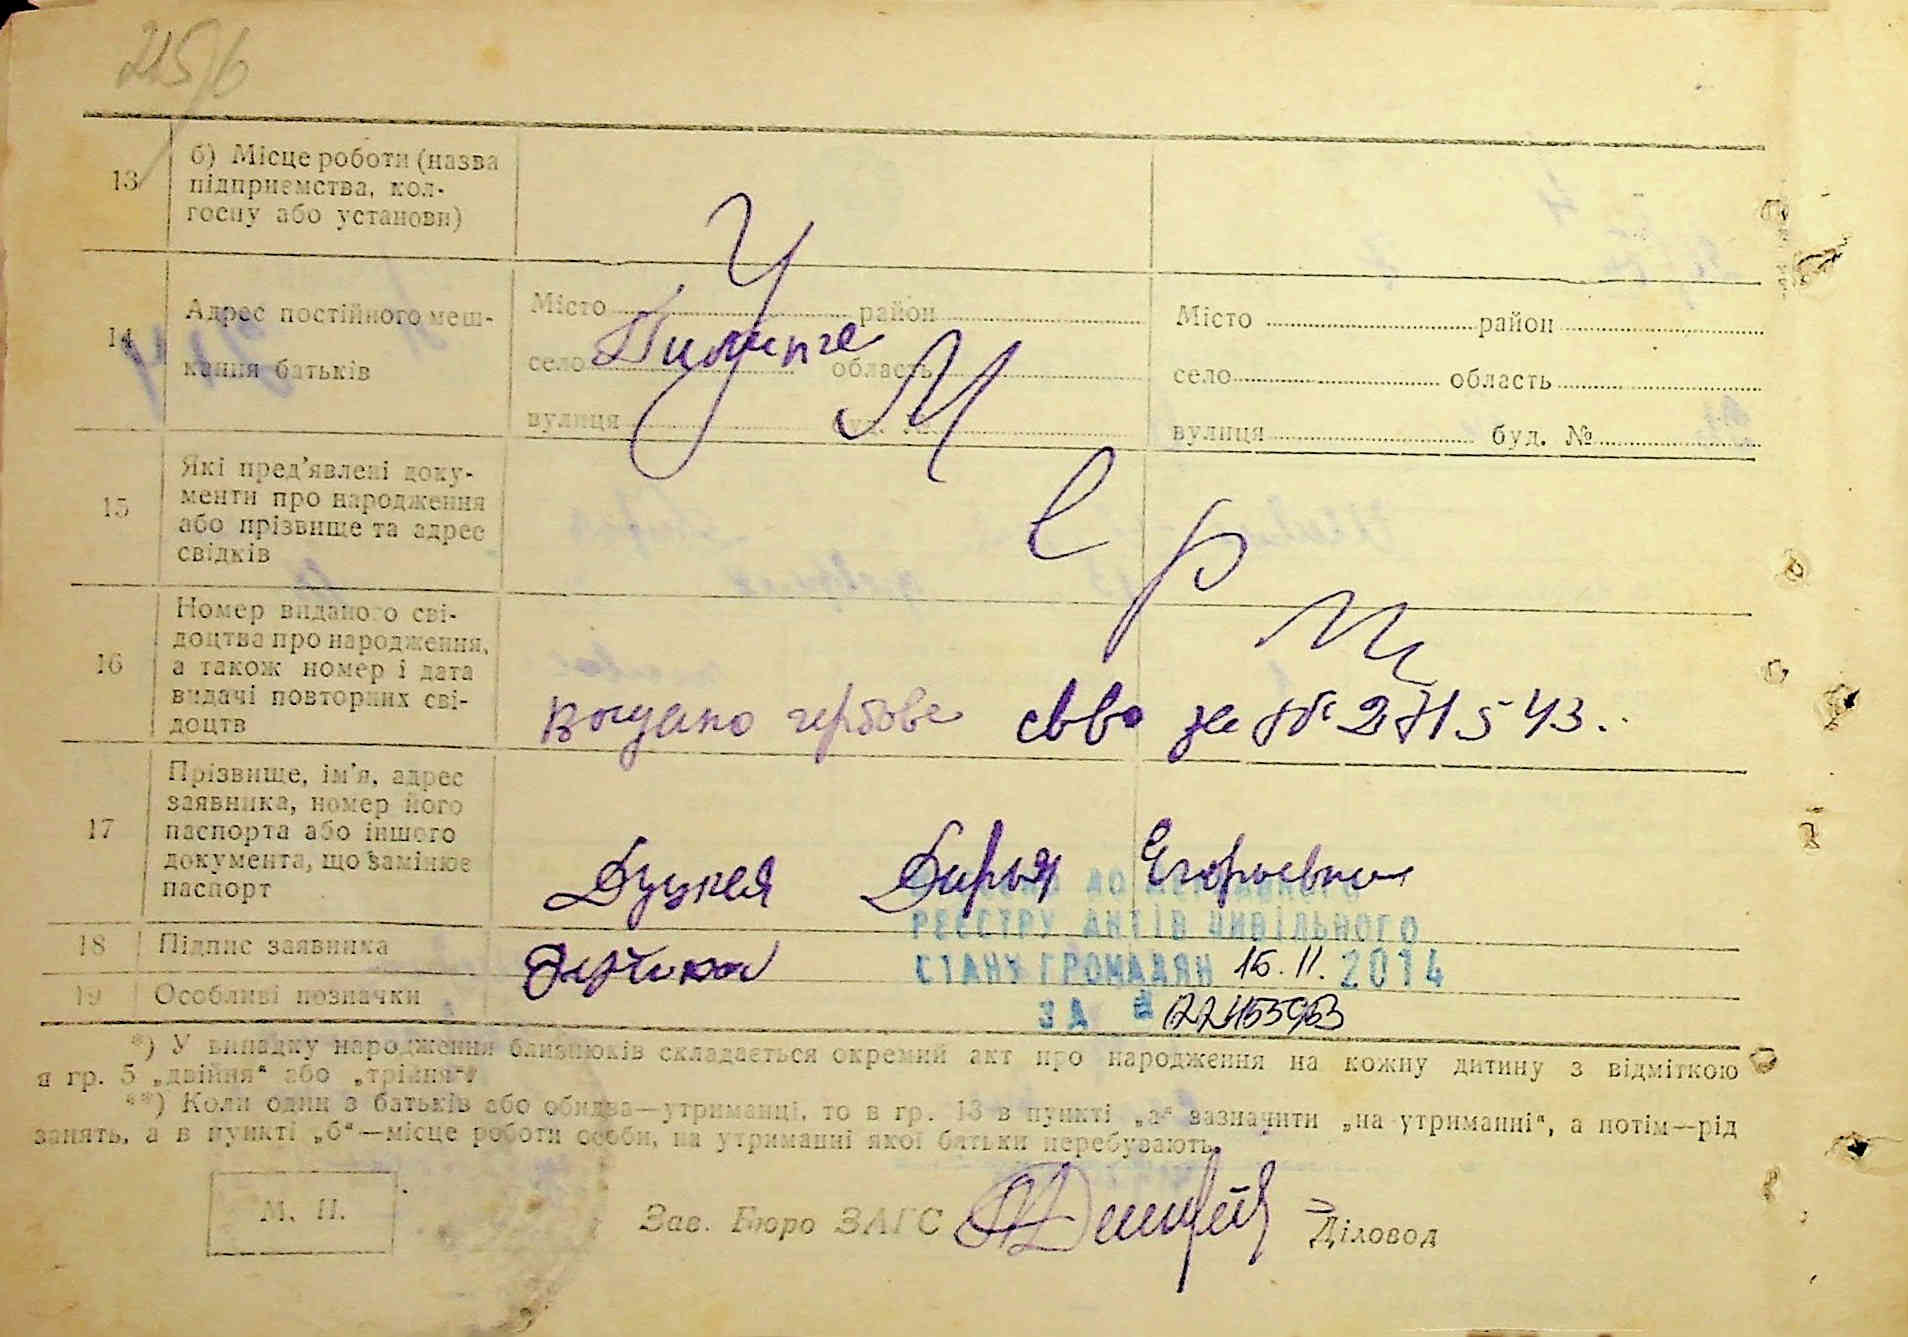 13
б) Місце роботи (назва
підприємства, кол-
госпу або установи)
14
Адрес постійного меш-
кання батьків
Місто район
село область
вулиця буд. №
Місто район
село область
вулиця буд. №
Умер
15
Які пред'явлені доку-
менти про народження
або прізвище та адрес
свідків
16
Номер виданого сві-
доцтва про народження,
а також номер і дата
видачі повторних сві-
доцтв
гербове св-во за № 271543.
17
Прізвище, ім'я, адрес
заявника, номер його
паспорта або іншого
документа, що замінює
паспорт
Дуцкая Дарья Егорьевна
ДО ДЕРЖАВНОГО
РЕЄСТРУ АКТІВ ЦИВІЛЬНОГО
СТАНУ ГРОМАДЯН 15.11.2014
ЗА №
18
Підпис заявника
19
Особливі позначки
*) У випадку народження близнюків складається окремий акт про народження на кожну дитину з відміткою
в гр. 5 „двійня“ або „трійня“
**) Коли один з батьків або обидва—утриманці, то в гр. 13 в пункті „а“ зазначити „на утриманні“, а потім—рід
занять, а в пункті „б“—місце роботи особи, на утриманні якої батьки перебувають.
М. П.
Зав. Бюро ЗАГС
Діловод